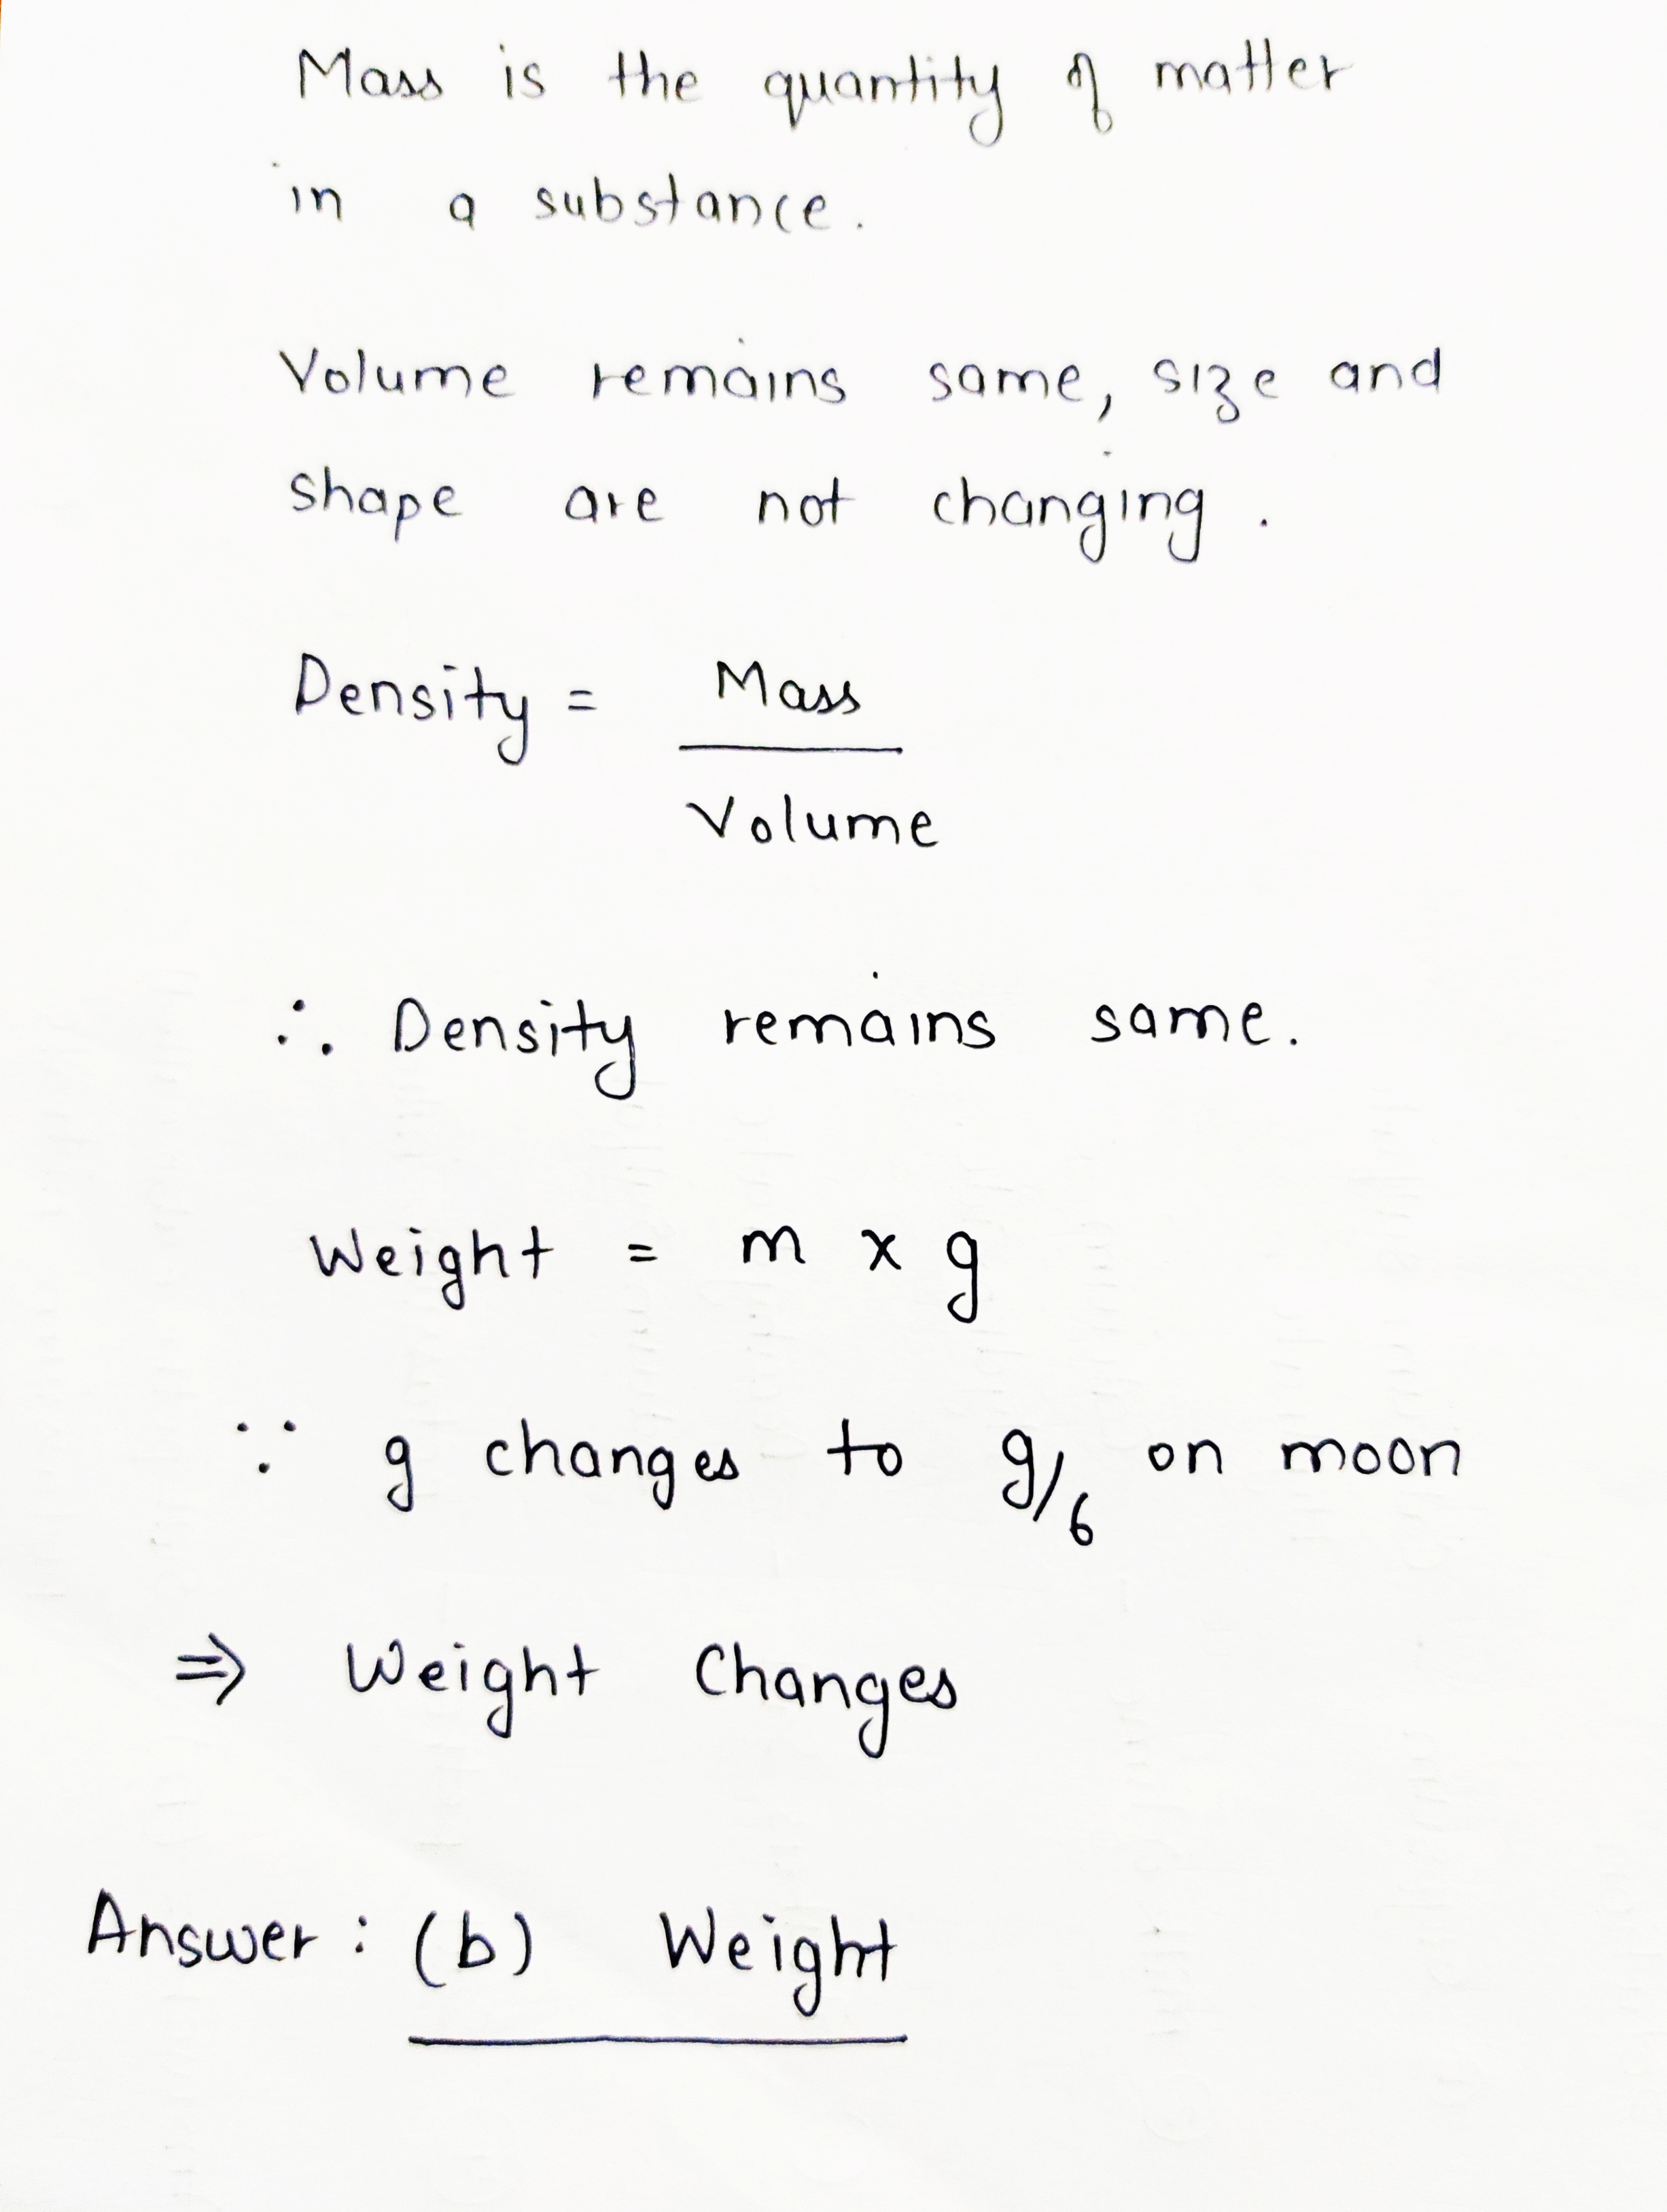 Mass is the quantity of matter
in a substance.
Volume remains same, size and
shape are not changing.
Density = Mass
Volume
∴ Density remains same.
Weight = m x g
∵ g changes to g/6 on moon
⇒ Weight Changes
Answer: (b) Weight